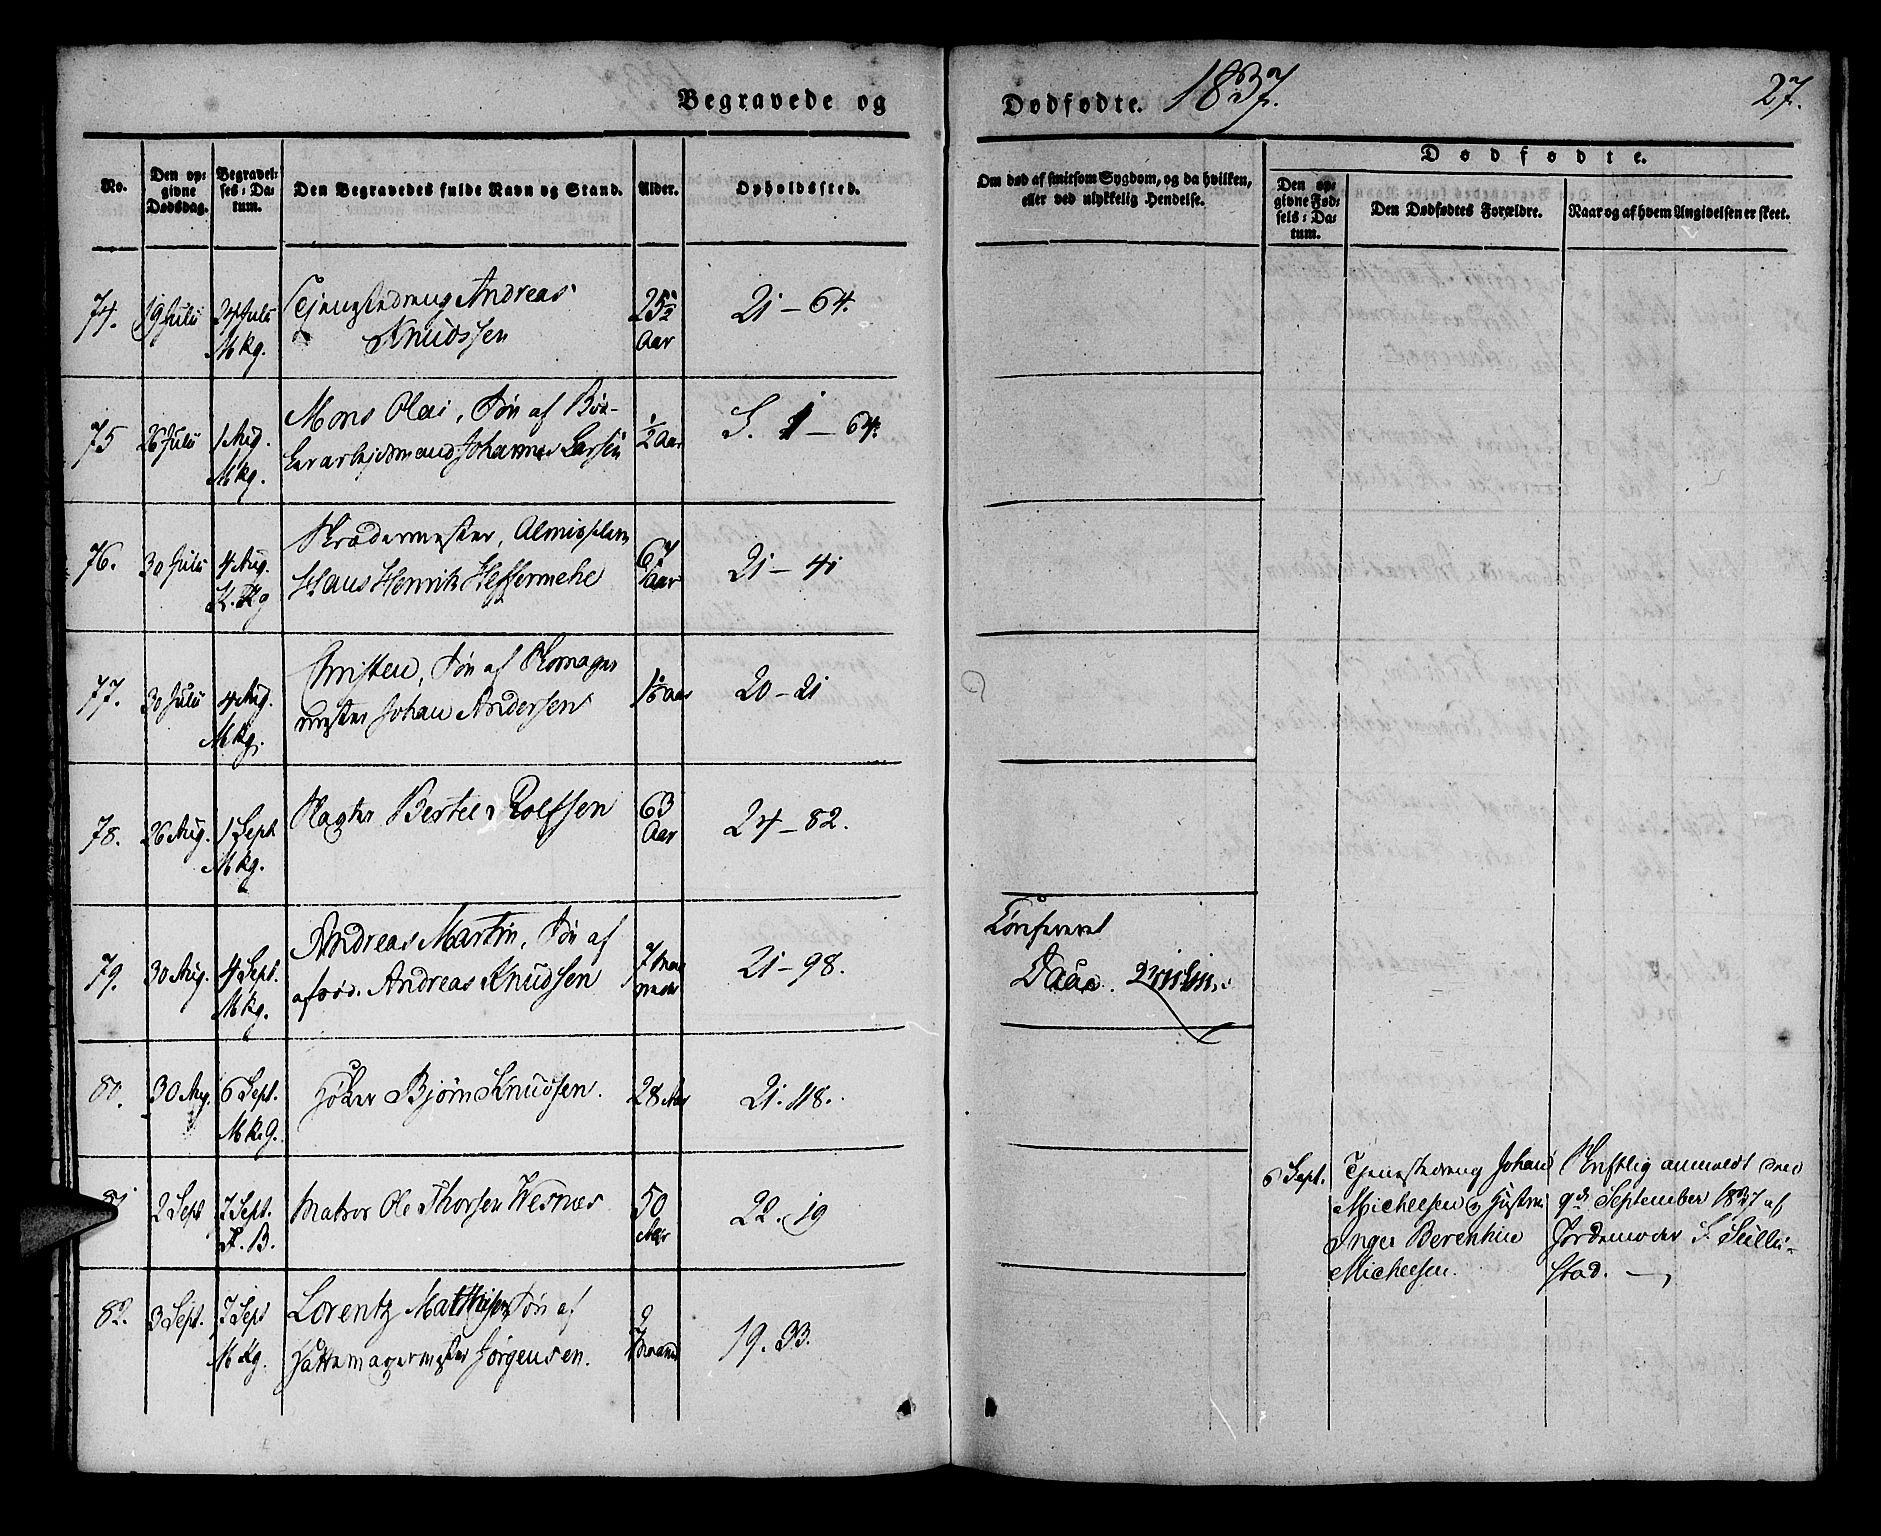 Begravede og
No.
Den op-
givne
Dødsdag.
Begravel-
ses-Da-
tum.
Den Begravedes fulde Navn og Stand.
Alder.
Opholdssted.
74. 19 Juli 31 Juli Tjenestedreng Andreas 25½ 21 – 64.
Mkg. Knudssen Aar
75 26 Juli 1 Aug. Mons Olai, Søn af Bor- ½ Aar S. 1 – 64.
Mkg. gerarbeidsmand Johannes Larsen
76. 30 Juli 4 Aug. Skrædermester, Almislem 67 21 – 41
K. Kg Claus Henrik Heffermehl Aar
77. 30 Juli 4 Aug. Christen, Søn af Skomager 20 – 21
Mkg. mester Johan Andersen
78. 26 Aug. 1 Sept Slagter Bertel Rolfsen 63 24 – 82.
Mkg. Aar
79. 30 Aug. 4 Sept. Andreas Martin, Søn af 7 Maa 21 – 98.
Mkg. afdød. Andreas Knudsen neder
80. 30 Aug. 6 Sept. Høker Bjørn Knudsen. 28 Aar 21. 118.
MKG.
81 2 Sept 7 Sept. Matros Ole Thorsen Wesnæs 50 22. 19
F. B. Aar
82. 3 Sept. 7 Sept Lorentz Matthis Søn af 19. 33.
Mkg. Hattemagermester Jørgensen. Maaned
Dødfødte. 1837.
27.
Om død af smitsom Sygdom, og da hvilken,
eller ved ulykkelig Hendelse.
Dødfødte.
Den op-
givne Fød-
sels-Da-
tum.
Den Dødfødtes Forældre.
Naar og af hvem Angivelsen er skeet.
Confereret
Daae.
6 Sept. Tjenestedreng Johan Skriftlig anmeldt den
Micheelsen og Hustru 9de September 1837 af
Inger Berenthine Jordemoder S. Sulle-
Micheelsen. stad. —